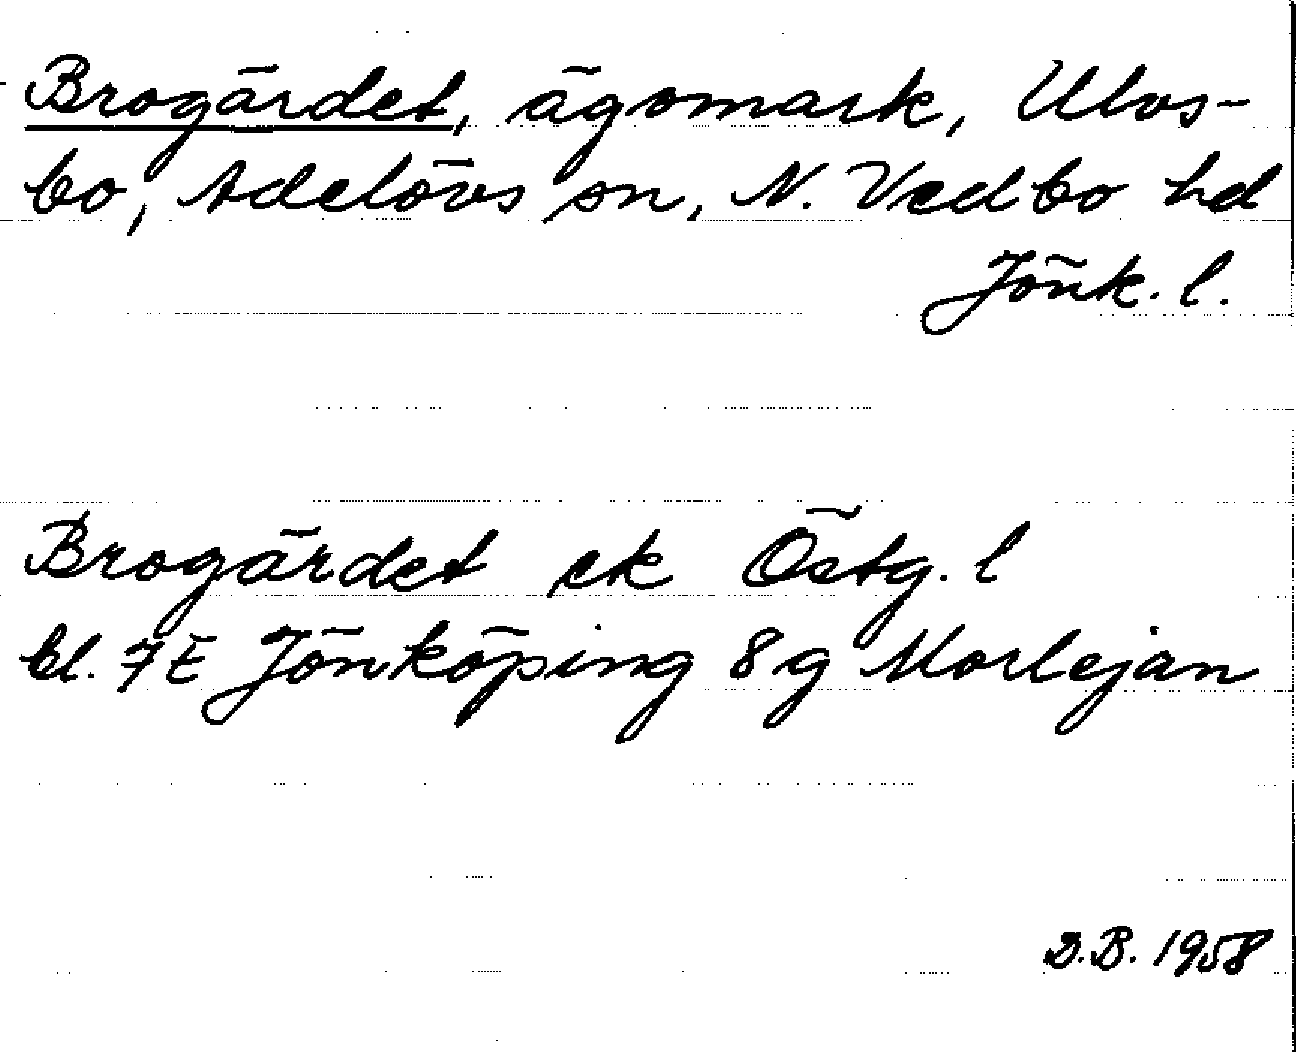 Brogärdet, ägomark, Ulvs-
bo, Adelövs sn, N. Vedbo hd
Jönk. l.
Brogärdet ek Östg. l
bl. 7E Jönköping 8 g Morlejan
D.B. 1958